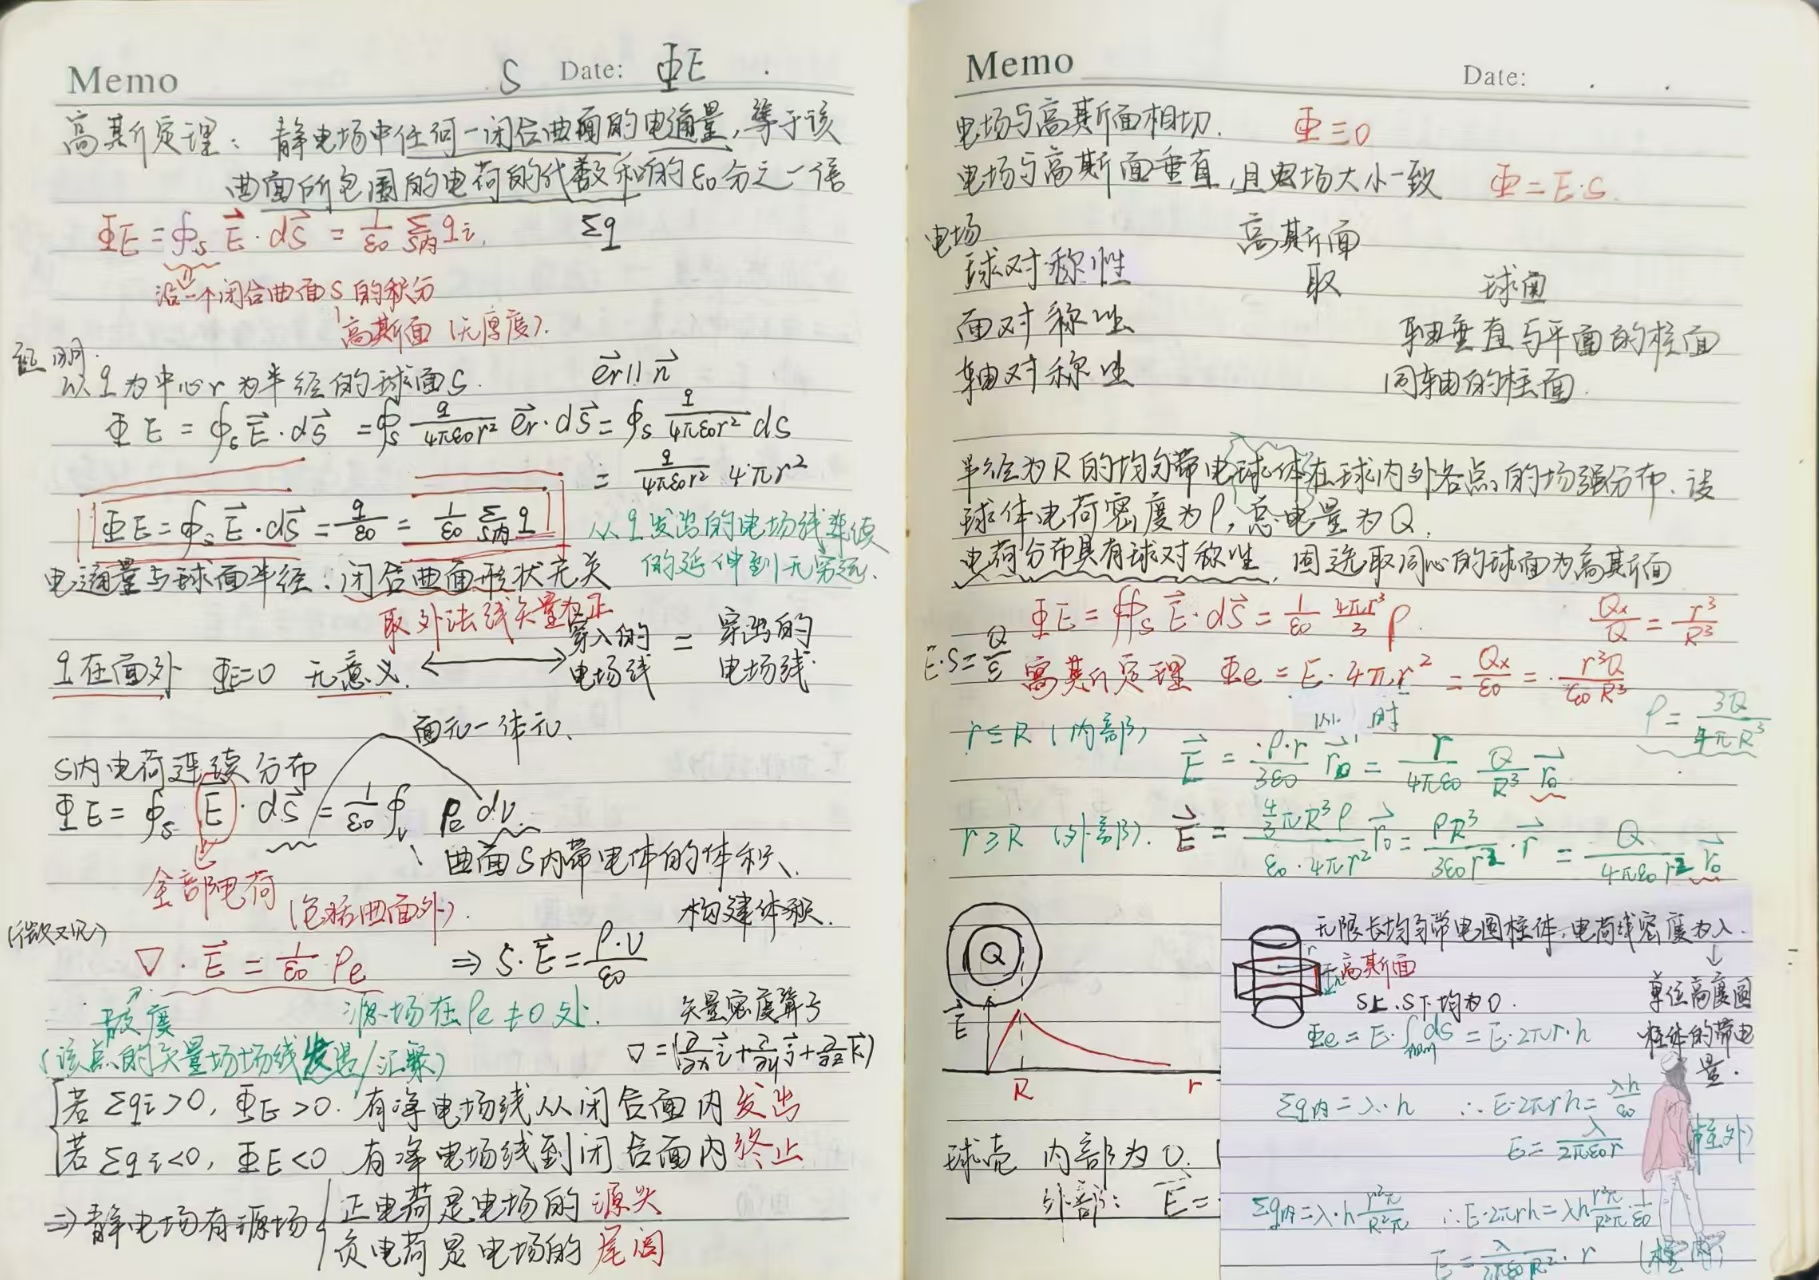 Memo S Date: ΦE
高斯定理：静电场中任何一闭合曲面的电通量，等于该
曲面所包围的电荷的代数和的ε0分之一倍
ΦE = ∮s E⃗·dS⃗ = 1/ε0 Σ S内 qi. Σq
沿一个闭合曲面S的积分
高斯面（无厚度）.
证明.
以q为中心r为半径的球面S. e⃗r∥n⃗
ΦE = ∮s E⃗·dS⃗ = ∮s q/4πε0r² e⃗r·dS⃗ = ∮s q/4πε0r² dS
= q/4πε0r² 4πr²
ΦE = ∮s E⃗·dS⃗ = q/ε0 = 1/ε0 Σ S内 q
从q发出的电场线连续
的延伸到无穷远.
电通量与球面半径.闭合曲面形状无关
取外法线矢量为正
q在面外 ΦE=0 无意义. ⟷ 穿入的电场线 = 穿出的电场线.
面元一体元.
S内电荷连续分布
ΦE = ∮s E·dS⃗ = 1/ε0 ∮v ρe dv.
曲面S内带电体的体积.
全部电荷（包括曲面外）. 构建体积.
（微观）
∇·E⃗ = 1/ε0 ρe ⇒ S·E⃗ = ρ·V/ε0
源场在ρe≠0处. 矢量密度算子
（该点的矢量场场线发出/汇聚） ∇=(∂/∂x i⃗+∂/∂y j⃗+∂/∂z k⃗)
若Σqi>0, ΦE>0. 有净电场线从闭合面内发出
若Σqi<0, ΦE<0 有净电场线到闭合面内终止
⇒静电场有源场{正电荷是电场的源头
负电荷是电场的尾闾
Memo Date:
电场与高斯面相切. Φ≡0
电场与高斯面垂直,且电场大小一致 Φ=E·S.
电场 高斯面
球对称性 取 球面
面对称性 轴垂直与平面的柱面
轴对称性 同轴的柱面.
半径为R的均匀带电球体在球内外各点的场强分布.设
球体电荷密度为ρ,总电量为Q.
电荷分布具有球对称性,固选取同心的球面为高斯面
ΦE = ∯s E⃗·dS⃗ = 1/ε0 4πr³/3 ρ. Qx/Q = r³/R³
E·S=Q/ε 高斯定理 Φe = E·4πr² = Qx/ε0 = r³Q/ε0R³
ρ = 3Q/4πR³
r≤R（内部） E⃗ = ρ·r/3ε0 r⃗0 = r/4πε0 Q/R³ r⃗0
r≥R（外部）. E⃗ = 4/3πR³ρ/ε0·4πr² r⃗0 = ρR³/3ε0r²·r⃗ = Q/4πε0r² r⃗0
Q
E⃗
R r
球壳 内部为0.
外部: E⃗=
无限长均匀带电圆柱体,电荷线密度为λ.
r 高斯面
S上.S下均为0. 单位高度圆
柱体的带电
量.
Φe = E·∫dS = E·2πr·h
Σq内=λ·h ∴E·2πrh=λh/ε0
E=λ/2πε0r （柱外）
Σq内=λ·h r²π/R²π ∴E·2πrh=λh r²π/R²π·1/ε0
E=λ/2πε0R²·r （柱内）